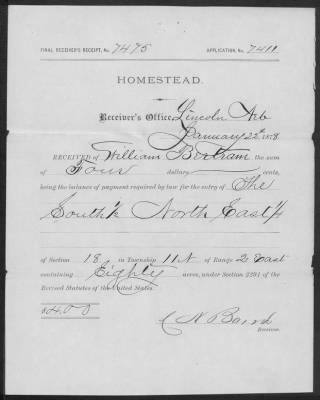 FINAL RECEIVER'S RECEIPT, No. 7475 APPLICATION, No. 7411
HOMESTEAD.
Receiver's Office, Lincoln Neb
January 22d 1878
RECEIVED OF William Bertram the sum
of Four dollars cents,
being the balance of payment required by law for the entry of The
South ½ North East ¼
of Section 18 in Township 11 N of Range 2 East
containing Eighty acres, under Section 2291 of the
Revised Statutes of the United States.
$4.00
C N Baird
Receiver.